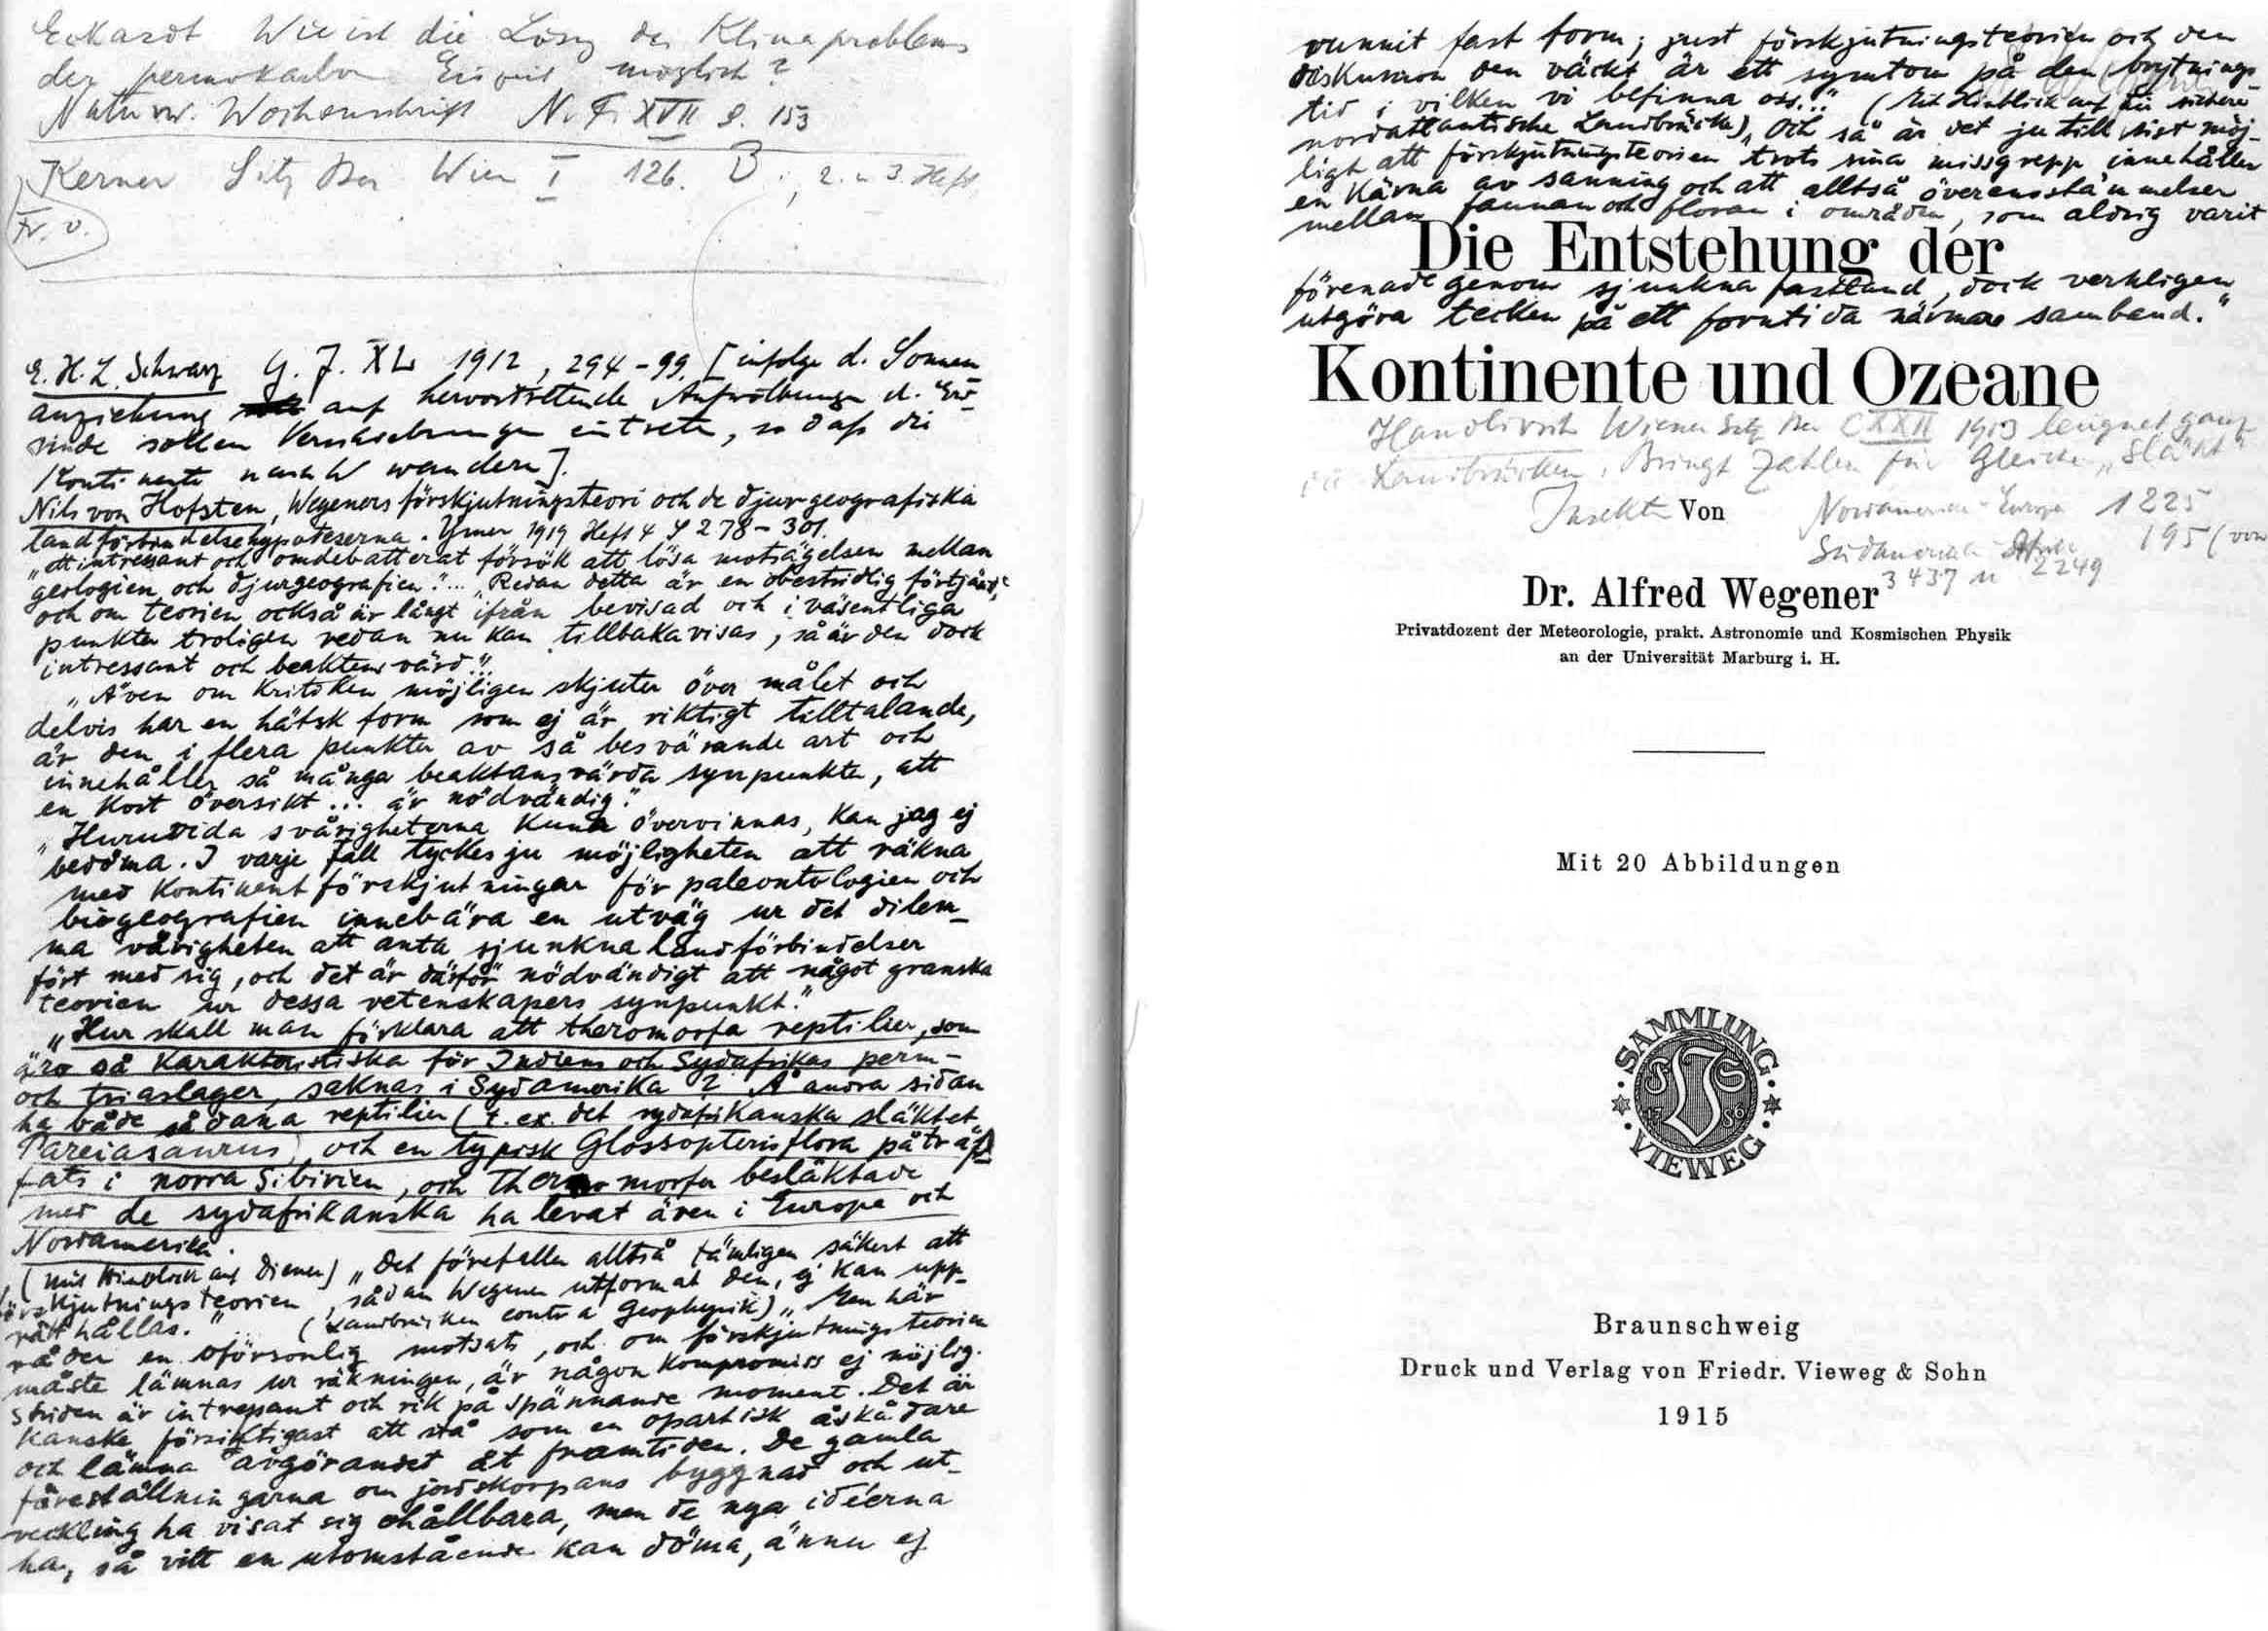 Eckardt Wie ist die Lösg des Klimaproblems
der permokarbon Eiszeit möglich?
Naturw. Wochenschrift N. F. XVII S. 153
Kerner Sitz Ber Wien I 126. B. , 2. u 3. Heft,
Fr. v.
E. H. L. Schwarz G. J. XL 1912, 294-99. [infolge d. Sonnen
anziehung auf hervortretende Aufwölbungen d. Erd-
rinde sollen Verschiebungen eintreten, so daß die
Kontinente nach W wandern].
Nils von Hofsten, Wegeners förskjutningsteori och de djurgeografiska
landförbindelsehypoteserna. Ymer 1919 Heft 4 S 278-301.
„ett intressant och omdebatterat försök att lösa motsägelsen mellan
geologien och djurgeografien." ... „Redan detta är en obestridlig förtjänst,
och om teorien också är långt ifrån bevisad och i väsentliga
punkter troligen redan nu kan tillbakavisas, så är den dock
intressant och beaktensvärd."
„Även om kritiken möjligen skjuter över målet och
delvis har en hätsk form som ej är riktigt tilltalande,
är den i flera punkter av så besvärande art och
innehåller så många beaktansvärda synpunkter, att
en kort översikt ... är nödvändig."
„Huruvida svårigheterna kunna övervinnas, kan jag ej
bedöma. I varje fall tyckes ju möjligheten att räkna
med kontinentförskjutningar för paleontologien och
biogeografien innebära en utväg ur det dilem-
ma vårigheten att anta sjunkna landförbindelser
fört med sig, och det är därför nödvändigt att något granska
teorien ur dessa vetenskapers synpunkt."
„Hur skall man förklara att theromorfa reptilier, som
äro så karakteristiska för Indiens och Sydafrikas perm-
och triaslager, saknas i Sydamerika? Å andra sidan
ha både sådana reptilier (t. ex. det sydafrikanska släktet
Pareiasaurus) och en typisk Glossopterisflora påträf-
fats i norra Sibirien, och theromorfer besläktade
med de sydafrikanska ha levat även i Europa och
Nordamerika.
(mit Hinblick auf Diener) „Det förefaller alltså tämligen säkert att
förskjutningsteorien, sådan Wegener utformat den, ej kan upp-
rätthållas." ... (Landbrücken contra Geophysik) „Men här
råder en oförsonlig motsats, och om förskjutningsteorien
måste lämnas ur räkningen, är någon kompromiss ej möjlig.
Striden är intressant och rik på spännande moment. Det är
kanske försiktigast att stå som en opartisk åskådare
och lämna avgörandet åt framtiden. De gamla
föreställningarna om jordskorpans byggnad och ut-
veckling ha visat sig ohållbara, men de nya idéerna
ha, så vitt en utomstående kan döma, ännu ej
vunnit fast form; just förskjutningsteorien och den
diskussion den väckt är ett symtom på den brytnings-
tid i vilken vi befinna oss..." (Mit Hinblick auf die
nordatlantische Landbrücke) „Och så är det ju till sist möj-
ligt att förskjutningsteorien trots sina missgrepp innehåller
en kärna av sanning och att alltså överensstämmelser
mellan faunan och floran i områden, som aldrig varit
Die Entstehung der
förenade genom sjunkna fastland, dock verkligen
utgöra tecken på ett forntida närmare samband."
Kontinente und Ozeane
Handlirsch Wiener Sitz Ber CXXII 1913 leugnet ganz
die Landbrücken. Bringt Zahlen für gleiche „Släkt"
Insekten Von Nordamerika-Europa 1225
Südamerika-Afrika 195 (von
3437 u 2249
Dr. Alfred Wegener
Privatdozent der Meteorologie, prakt. Astronomie und Kosmischen Physik
an der Universität Marburg i. H.
Mit 20 Abbildungen
SAMMLUNG
17 86
VIEWEG
Braunschweig
Druck und Verlag von Friedr. Vieweg & Sohn
1915